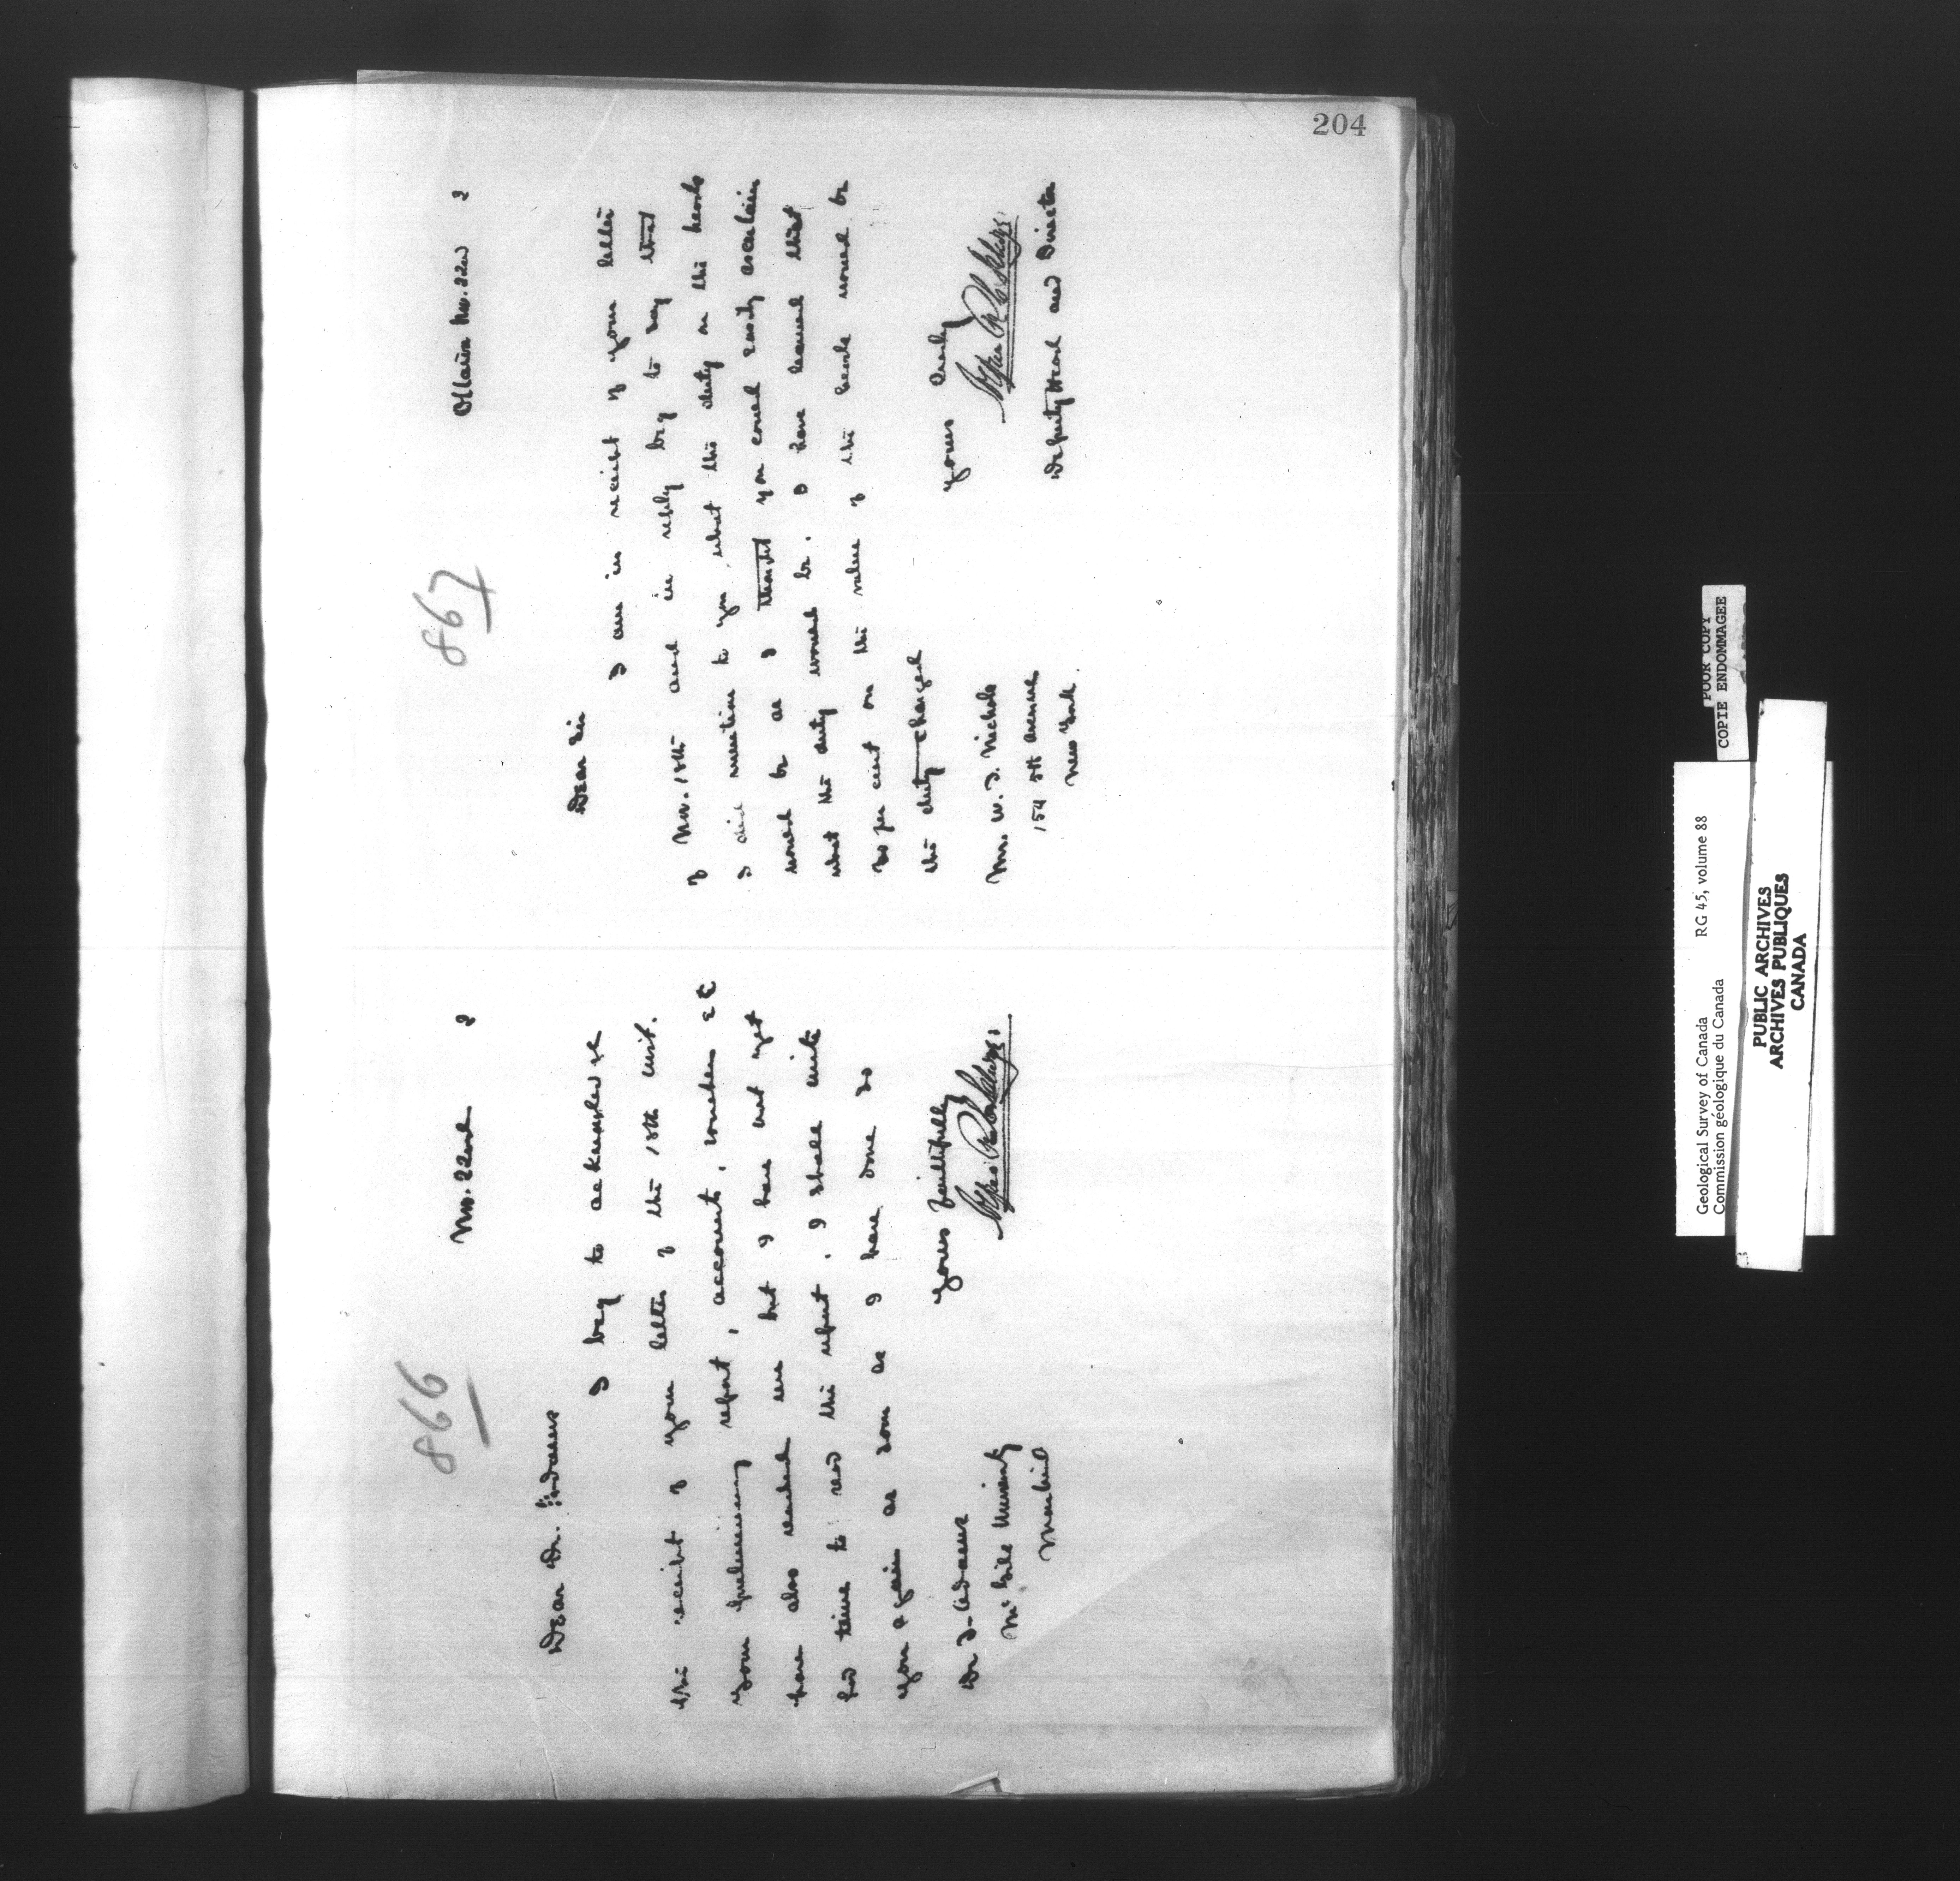 204
866
Nov. 22nd 2
Dear Dr. Adams
I beg to acknowledge
the receipt of your letter of the 18th inst.
Your preliminary report, accounts, vouchers &c
have also reached me but I have not yet
had time to read the report. I shall write
you again as soon as I have done so
Yours faithfully
Dr. F. Adams
McGill University
Montreal
867
Ottawa Nov. 22nd 2
Dear Sir
I am in receipt of your letter
of Nov. 18th and in reply beg to say that
I did mention to you what the duty on the heads
would be as I thought you could easily ascertain
what the duty would be. I have learned that
20 per cent on the value of the heads would be
the duty charged
Yours truly
Deputy Head and Director
Mr. W. J. Nichols
154 5th Avenue
New York
POOR COPY
COPIE ENDOMMAGEE
Geological Survey of Canada RG 45, volume 88
Commission géologique du Canada
PUBLIC ARCHIVES
ARCHIVES PUBLIQUES
CANADA